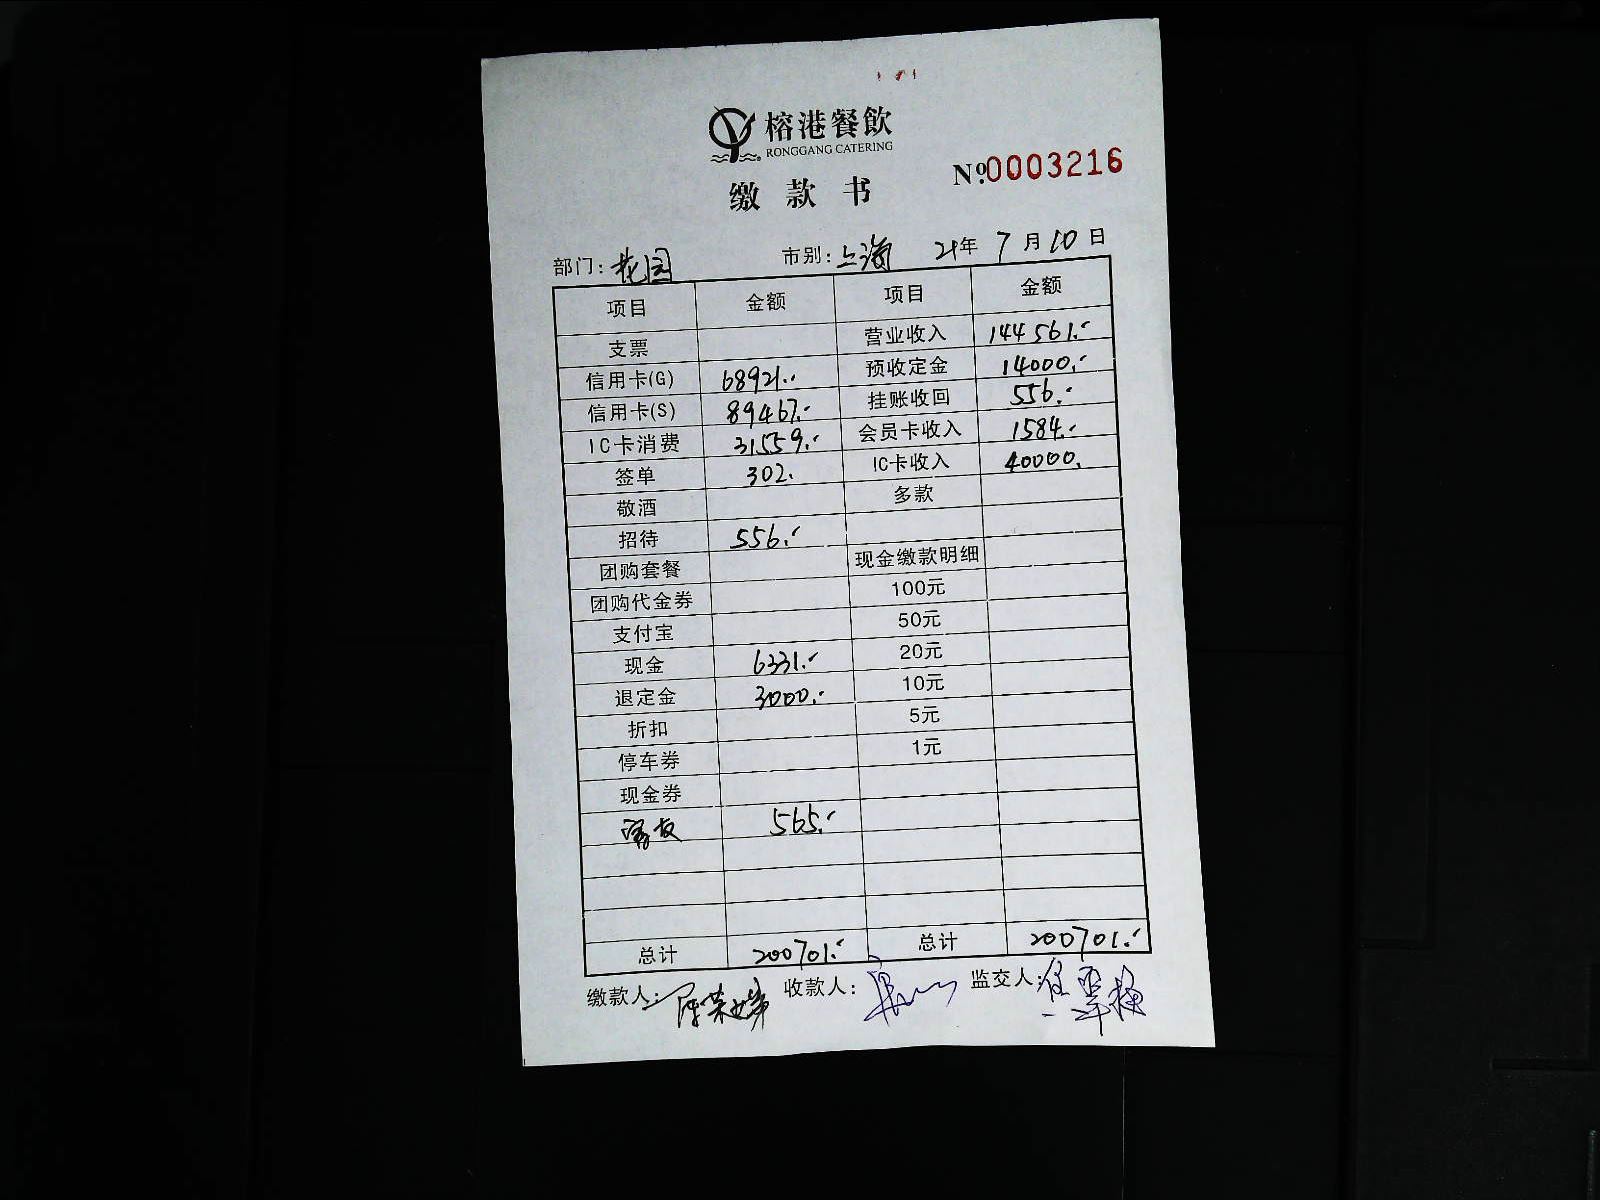 榕港餐飲
RONGGANG CATERING
缴款书
Nº:0003216
部门: 花园 市别: 上海 21年 7月10日
项目 金额 项目 金额
支票 营业收入 144561.-
信用卡(G) 68921.- 预收定金 14000.-
信用卡(S) 89467.- 挂账收回 556.-
IC卡消费 31559.- 会员卡收入 1584.-
签单 302. IC卡收入 40000.
敬酒 多款
招待 556.-
团购套餐 现金缴款明细
团购代金券 100元
支付宝 50元
现金 6331.- 20元
退定金 3000.- 10元
折扣 5元
停车券 1元
现金券
565.-
总计 200701.- 总计 200701.-
缴款人: 收款人: 监交人: